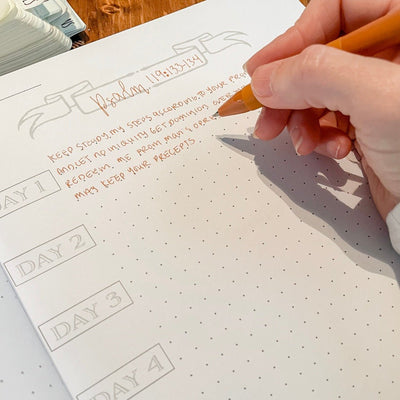 Psalm 119:133-134
KEEP STEADY MY STEPS ACCORDING TO YOUR PRO
AND LET NO INIQUITY GET DOMINION OVER
REDEEM ME FROM MAN'S OPP
MAY KEEP YOUR PRECEPTS.
DAY 1
DAY 2
DAY 3
DAY 4